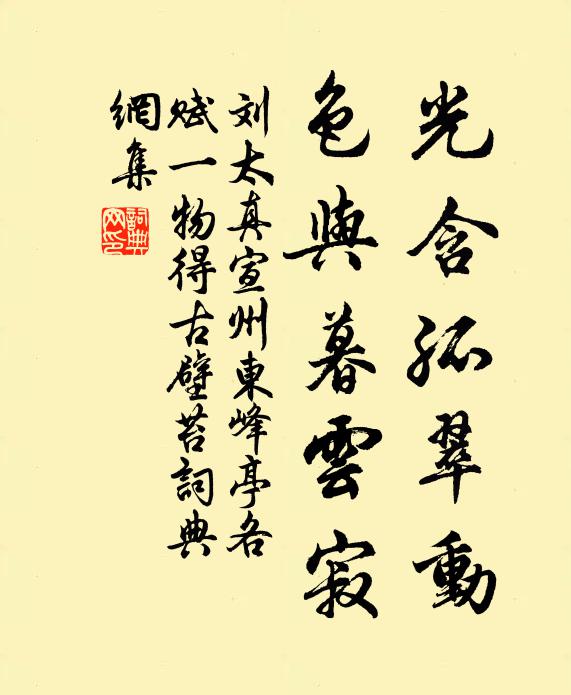 光含孤翠動
色與暮雲寂
刘太真宣州東峰亭各
賦一物得古壁苔詞典
網集
詞典網印